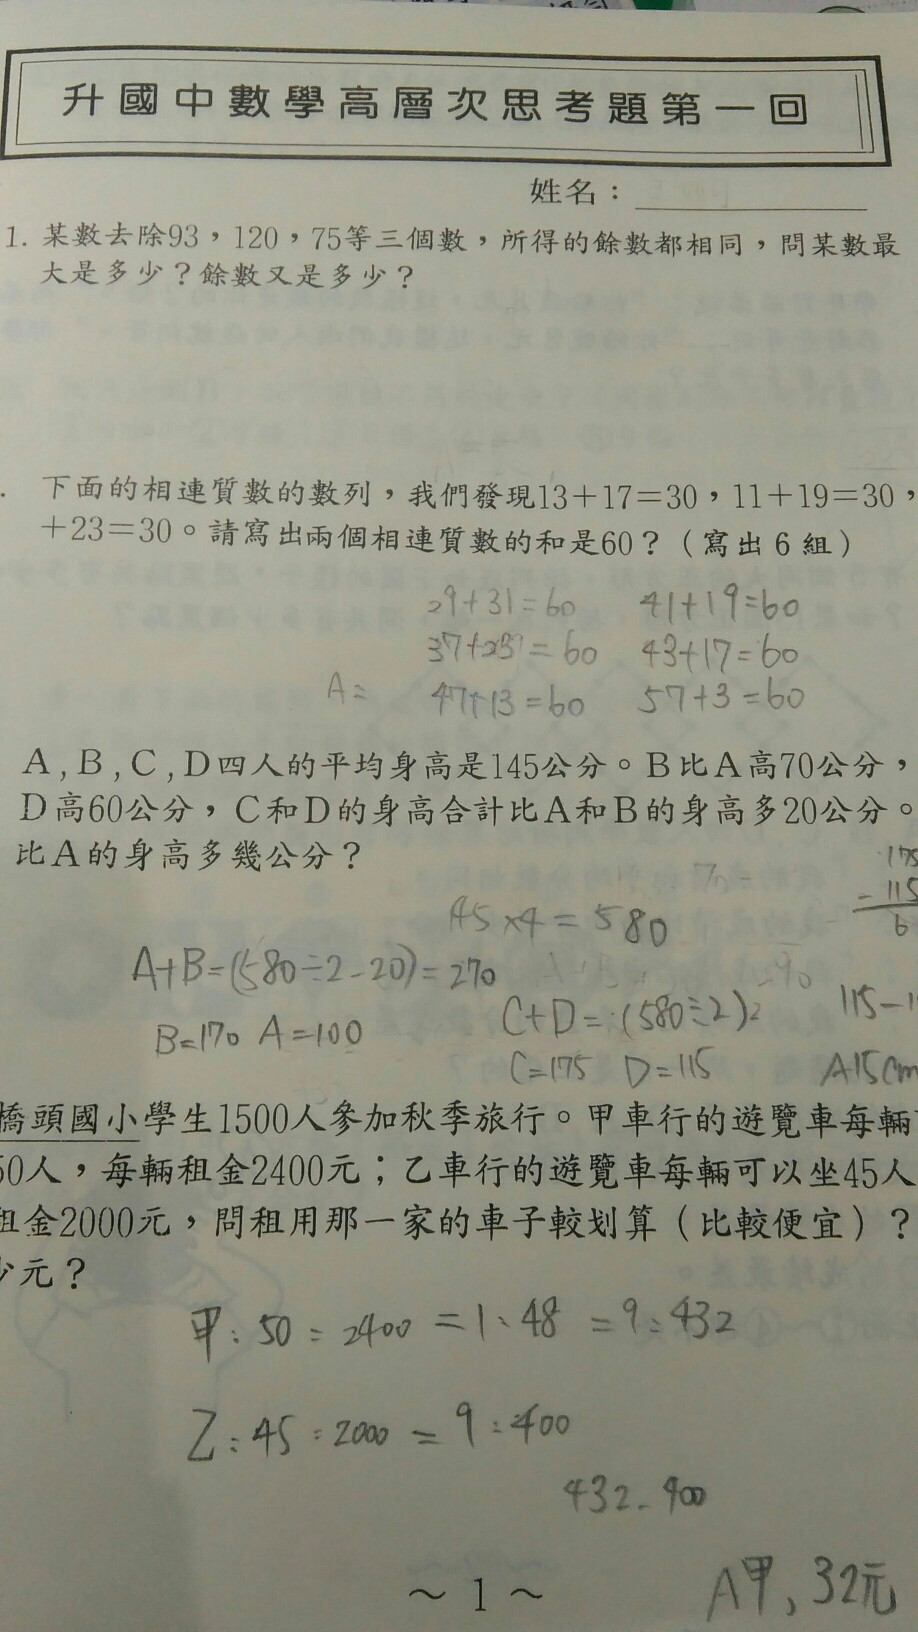 升國中數學高層次思考題第一回
姓名：
1. 某數去除93，120，75等三個數，所得的餘數都相同，問某數最
大是多少？餘數又是多少？
. 下面的相連質數的數列，我們發現13＋17＝30，11＋19＝30，
＋23＝30。請寫出兩個相連質數的和是60？（寫出 6 組）
29+31=60 41+19=60
37+23=60 43+17=60
A= 47+13=60 57+3=60
A , B , C , D四人的平均身高是145公分。B比A高70公分，
D高60公分，C和D的身高合計比A和B的身高多20公分。
比A的身高多幾公分？
175
-115
6
145×4=580
A+B=(580÷2-20)=270
C+D=(580÷2)
115-1
B=170 A=100
C=175 D=115
A15cm
橋頭國小學生1500人參加秋季旅行。甲車行的遊覽車每輛
50人，每輛租金2400元；乙車行的遊覽車每輛可以坐45人
租金2000元，問租用那一家的車子較划算（比較便宜）？
少元？
甲:50:2400=1:48=9:432
乙:45:2000=9:400
432-400
～ 1 ～
A甲、32元